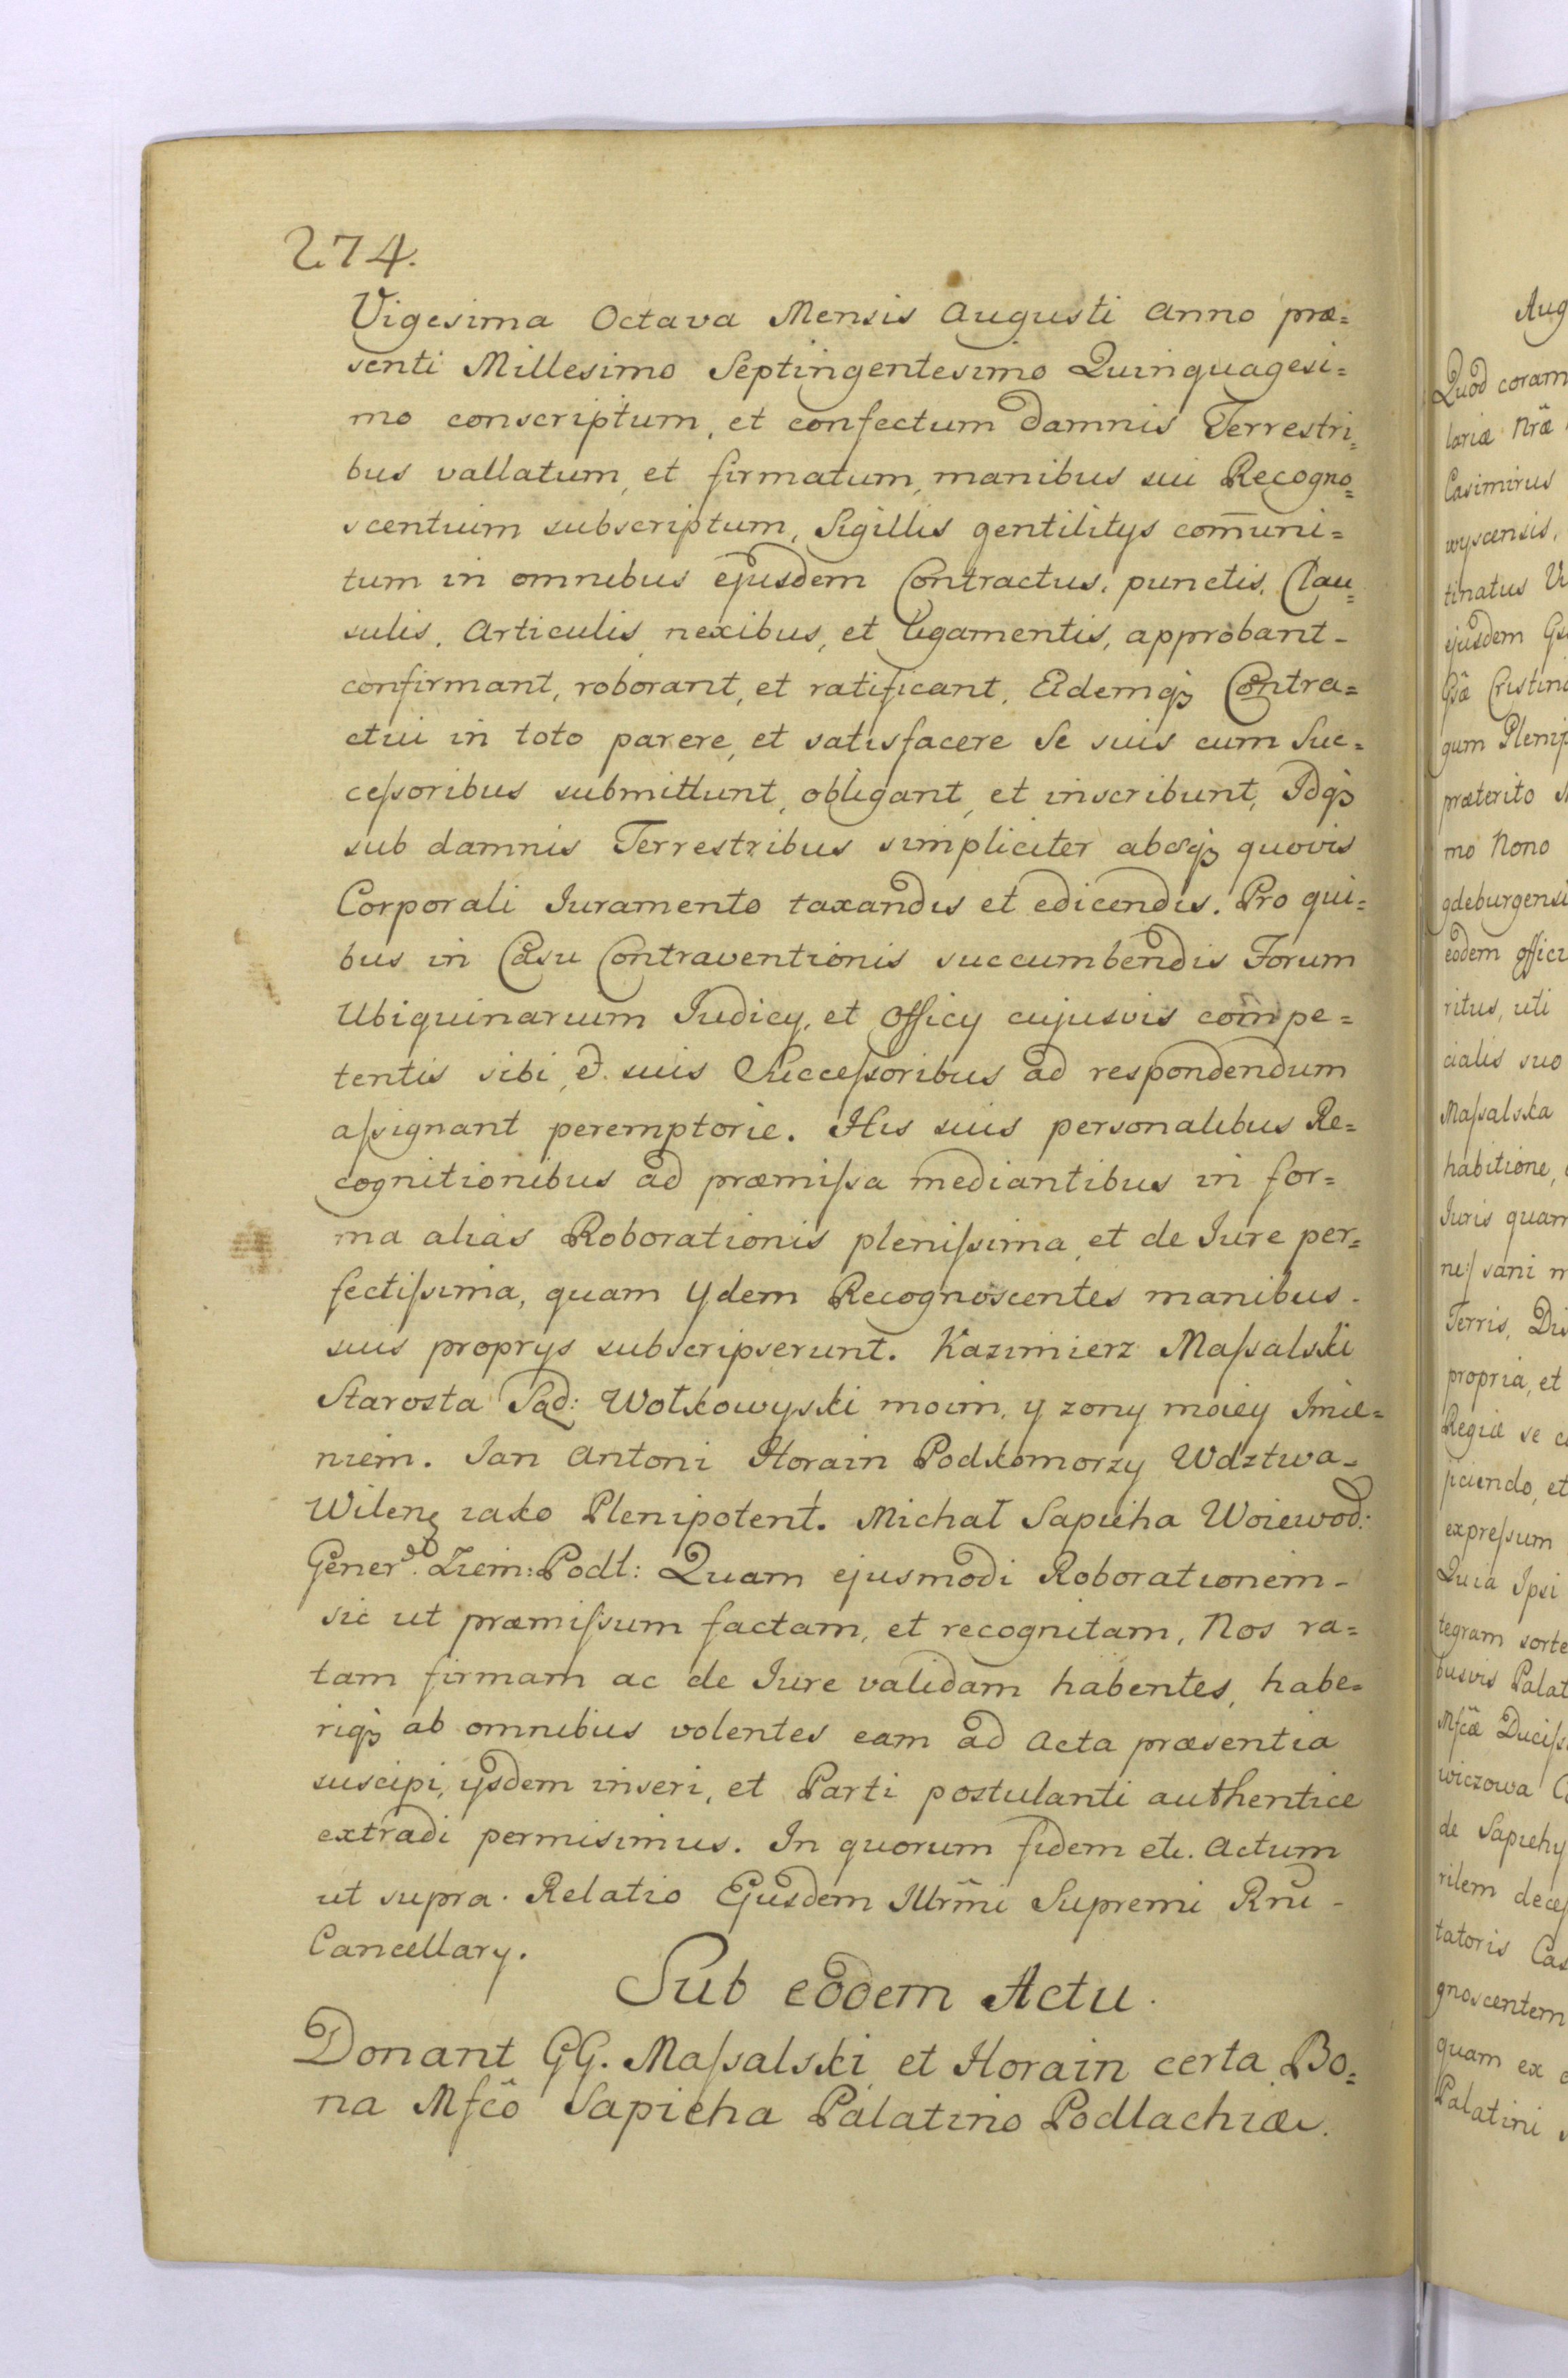 274.
Vigesima Octava Mensis Augusti Anno præ=
senti Millesimo Septingentesimo Quinquagesi=
mo conscriptum, et confectum damnis Terrestri=
bus vallatum, et firmatum, manibus sui Recogno=
scentium subscriptum, Sigillis gentilitys com̄uni=
tum in omnibus ejusdem Contractus, punctis, Clau=
sulis, Articulis, nexibus, et ligamentis, approbant -
confirmant, roborant, et ratificant, Eidemqꝫ Contra=
ctui in toto parere, et satisfacere Se suis cum Suc=
ceſsoribus submittunt, obligant, et inscribunt, Idqꝫ
sub damnis Terrestribus simpliciter absqꝫ quovis
Corporali Juramento taxandis et edicendis. Pro qui=
bus in Casu Contraventionis succumbendis Forum
Ubiquinarium Judicy, et Officy cujusvis compe=
tentis sibi, et suis Succeſsoribus ad respondendum
aſsignant peremptorie. His suis personalibus Re=
cognitionibus ad præmiſsa mediantibus in for=
ma alias Roborationis pleniſsima, et de Jure per=
fectiſsima, quam ydem Recognoscentes manibus.
suis proprys subscripserunt. Kazimierz Maſsalski
Starosta Sąd: Wołkowyski moim, y zony moiey Imie=
niem. Jan Antoni Horain Podkomorzy Wdztwa -
Wileńꝫ iako Plenipotent. Michał Sapieha Woiewod:
Gener: Ziem: Podl: Quam ejusmodi Roborationem -
sic ut præmiſsum factam, et recognitam, Nos ra=
tam firmam ac de Jure validam habentes, habe=
riqꝫ ab omnibus volentes eam ad Acta præsentia
suscipi, ysdem inseri, et Parti postulanti authentice
extradi permisimus. In quorum fidem etc. Actum
ut supra. Relatio Ejusdem Illrm̄i Supremi Rni -
Cancellary.
Sub eodem Actu.
Donant GG. Maſsalski, et Horain certa Bo=
na Mfcô Sapieha Palatino Podlachiæ.
Aug
Quod coram
lariæ Nrã
Casimirus
wyscensis,
tinatus Vi
ejusdem
Gsã Cristina
gum Plenip
præterito
mo Nono
gdeburgensi
eodem offici
ritus, uti
cialis suo
Maſsalska
habitione,
Juris quam
neſ sani m
Terris, Dis
propria, et
Regiæ se c
jiciendo, et
expreſsum
Quia Ipsi
tegram sorte
busvis Palat
Mfcã Duciſs
wiczowa
de Sapiehy
rilem deceſ
tatoris Cas
gnoscentem
quam ex
Palatini